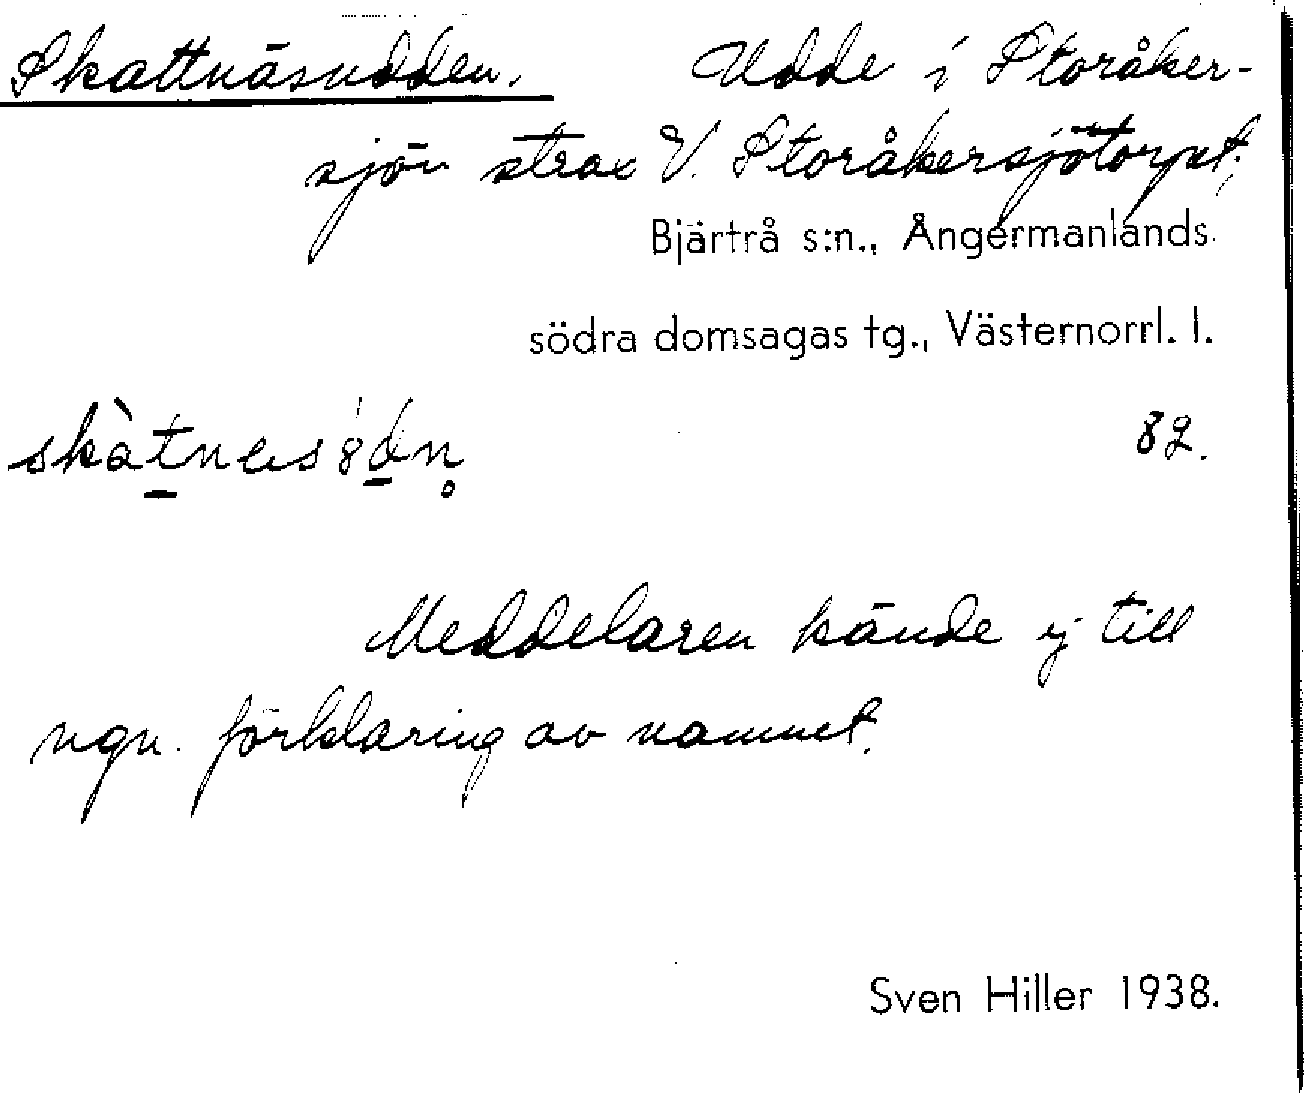 Skattnäsudden. Udde i Storåker-
sjön strax V. Storåkersjötorpet;
Bjärtrå s:n., Ångermanlands
södra domsagas tg., Västernorrl. l.
82.
Meddelaren kände ej till
ngn. förklaring av namnet.
Sven Hiller 1938.